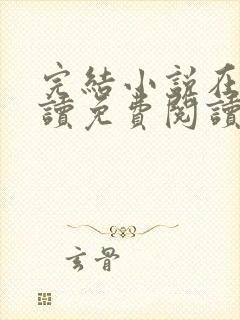 完結小說在
讀免費閱讀
玄骨